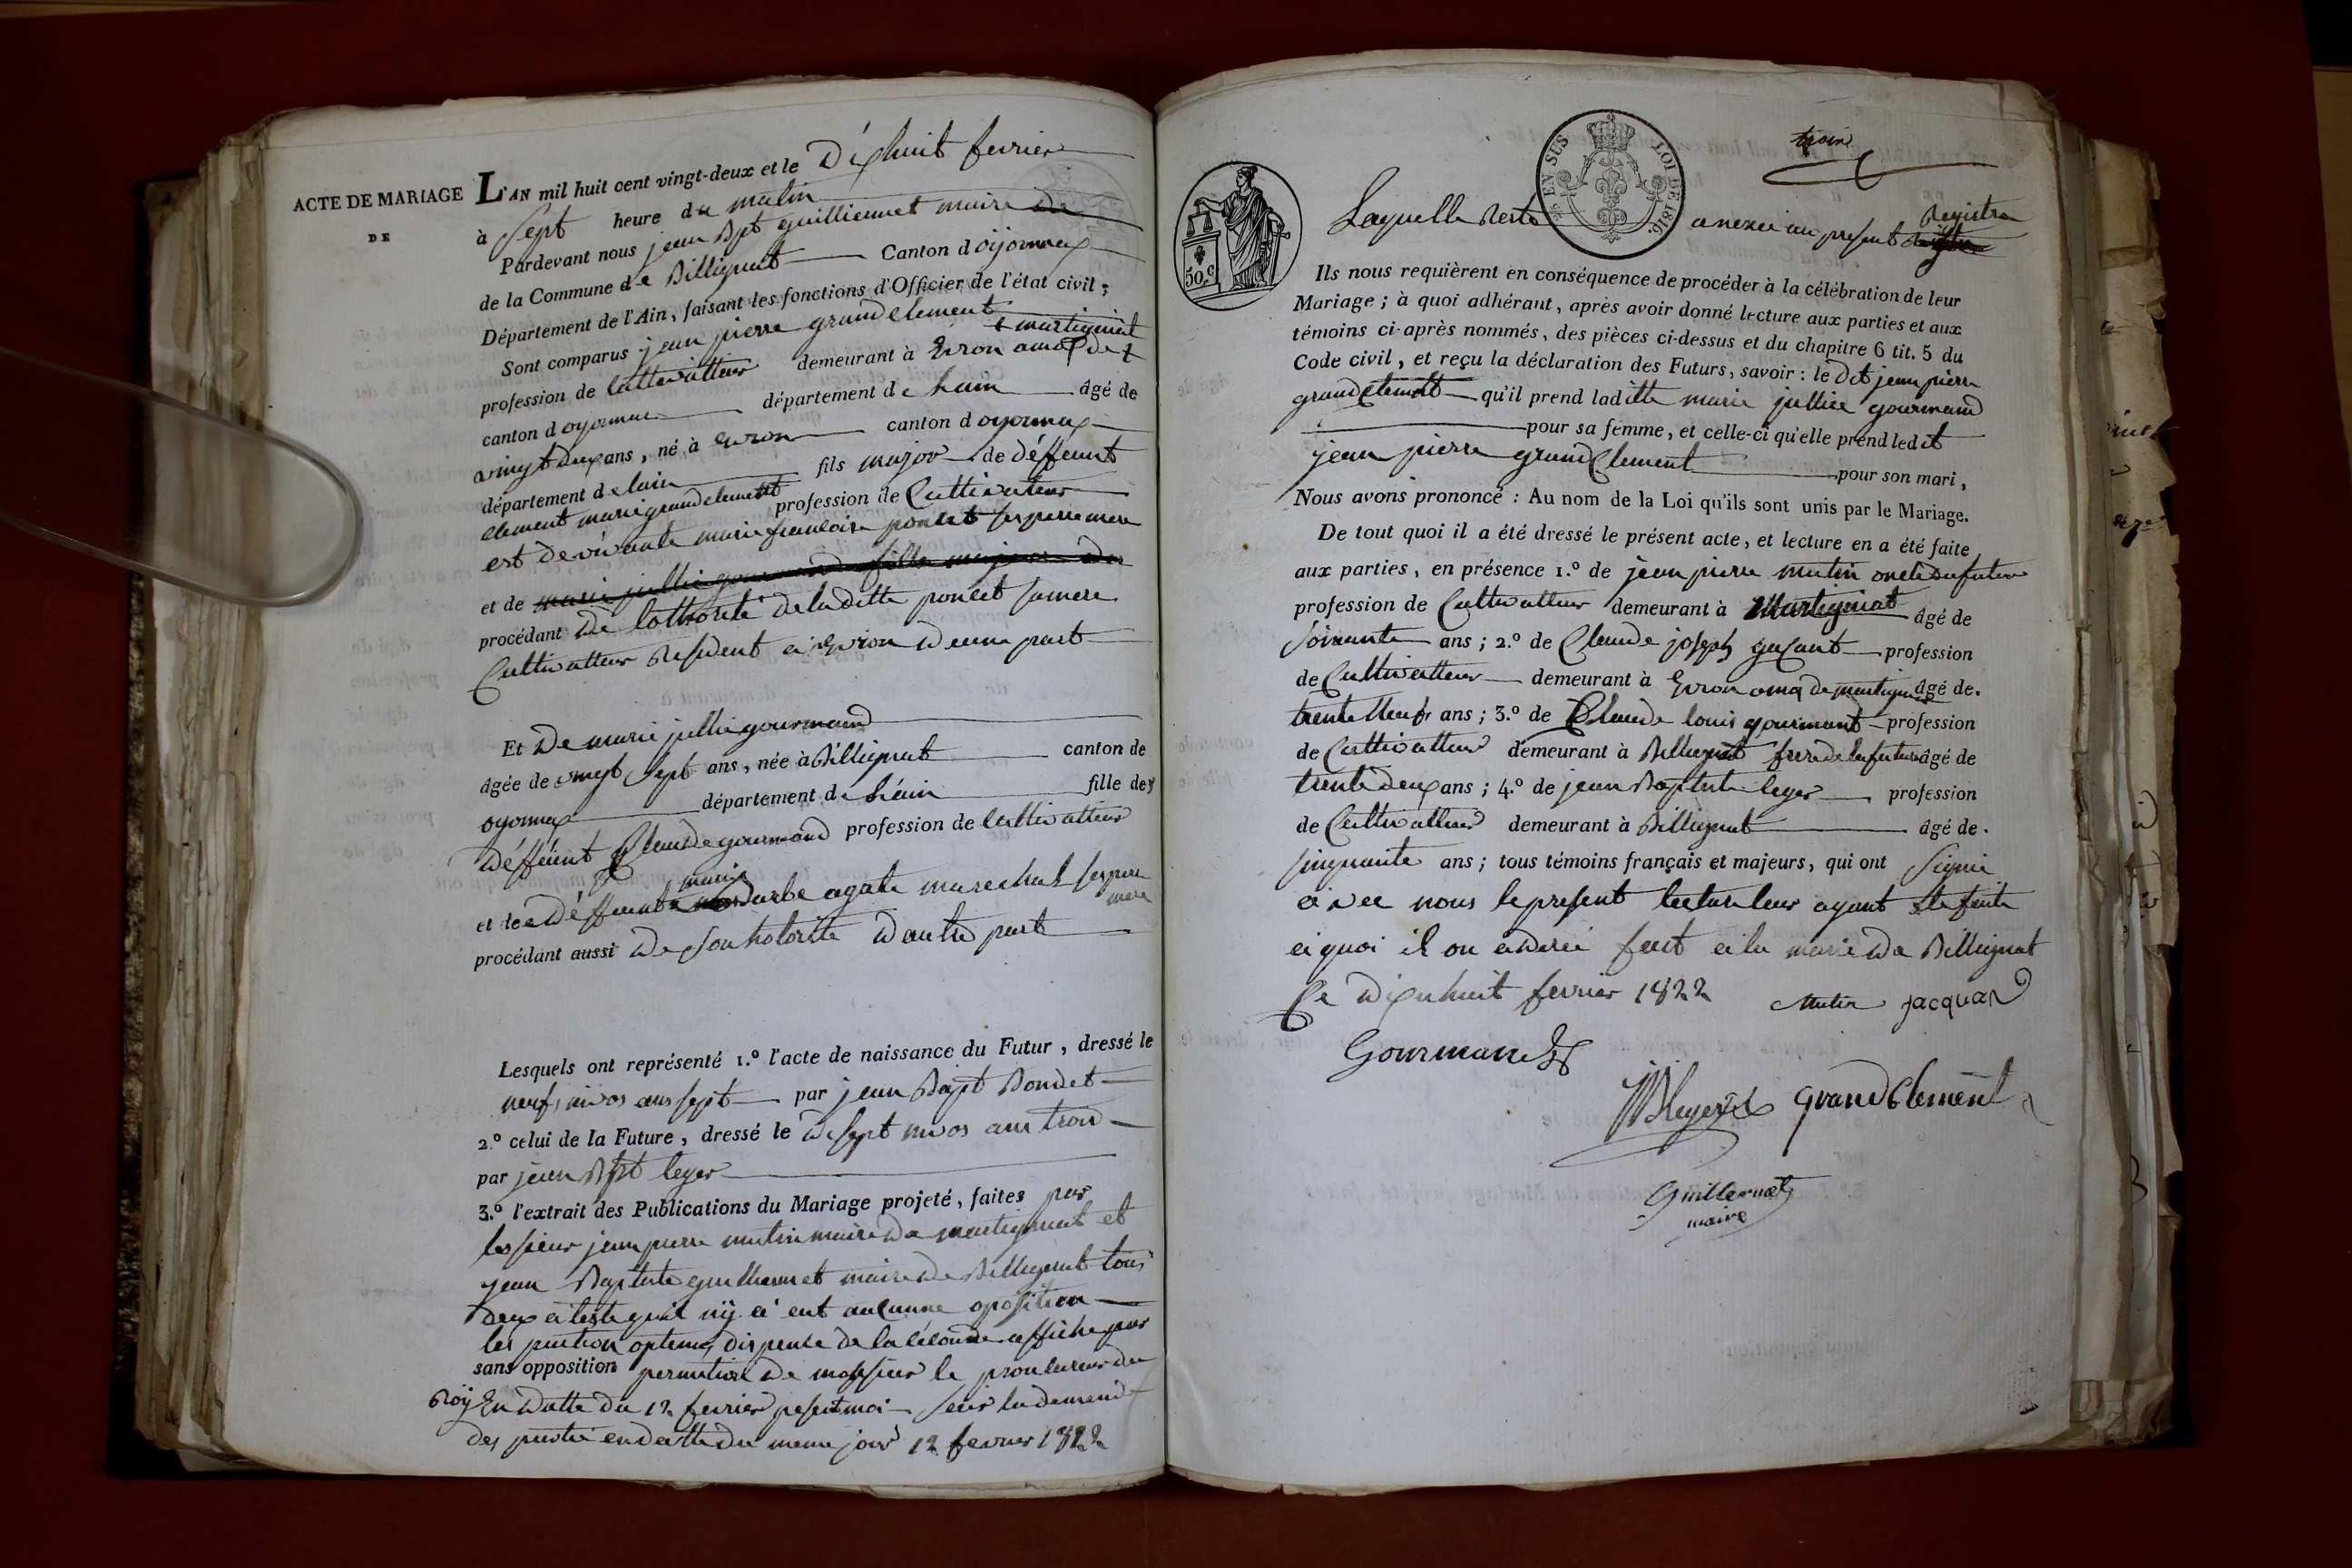 ACTE DE MARIAGE
DE
L'AN mil huit cent vingt-deux et le Dixhuit fevrier
à Sept heure du matin
Pardevant nous jean Bpt guilliermet maire de
de la Commune de Billignat Canton d oijonnax
Département de l'Ain, faisant les fonctions d'Officier de l'état civil;
Sont comparus jean pierre grandclement
+ martigniat
profession de Cultivatteur demeurant à Evron de +
canton d oyonnax département de hain âgé de
vingt deux ans, né à Evron canton d oyonnax
département de lain fils major de déffeunt
clement marie grandclement profession de Cultivateur
est de vivante marie francoise poncet ses perre mere
et de marie jullie gourmand fille majore de
procédant de lothorité de la ditte poncet sa mere
Cultivatteur Resident a Evron d'eune part
Et De marie jullie gourmand
âgée de vingt sept ans, née à Billignat canton de
oyonnax département de l'ain fille de
déffeunt Claude gourmand profession de Cultivatteur
marie
et de déffeunte barbe agate marechal ses pere
mere
procédant aussi de son hotorité d'autre part
Lesquels ont représenté 1.º l'acte de naissance du Futur, dressé le
neuf nivos ans sept par jean Bapt Bondet
2.º celui de la Future, dressé le sept nivos ans trois
par jean Bpt leger
3.º l'extrait des Publications du Mariage projeté, faites par
les sieur jean pierre mutin maire de martigniat et
jean Baptiste guilliermet maire de Billignat tous
deux ateste quil nÿ a eut aucunne oposition
les partion optenus dispense de la ceconde affiche par
sans opposition permition de monsieur le proculeur du
Roÿ En datte du 12 fevrier sur la demend
des partie en datte du meme jour 12 fevrier 1822
trois
EN SUS LOI DE 1816.
50.c
Registre
Laquelle Reste anexée au present
Ils nous requièrent en conséquence de procéder à la célébration de leur
Mariage; à quoi adhérant, après avoir donné lecture aux parties et aux
témoins ci-après nommés, des pièces ci-dessus et du chapitre 6 tit. 5 du
Code civil, et reçu la déclaration des Futurs, savoir: le Dt jean pierre
grandclement qu'il prend laditte marie jullie gourmand
pour sa femme, et celle-ci qu'elle prend ledit
jean pierre grandClement pour son mari,
Nous avons prononcé: Au nom de la Loi qu'ils sont unis par le Mariage.
De tout quoi il a été dressé le présent acte, et lecture en a été faite
aux parties, en présence 1.º de jean pierre mutin oncle du futeur
profession de Cultivatteur demeurant à Martigniat âgé de
soixante ans; 2.º de Claude joseph profession
de Cultivatteur demeurant à Evron de martigniat âgé de.
trente neuf ans; 3.º de Claude louis gourmand profession
de Cultivatteur demeurant à Billignat frere de la future âgé de
trente deux ans; 4.º de jean Baptiste leger profession
de Cultivatteur demeurant à Billignat âgé de.
sinquante ans; tous témoins français et majeurs, qui ont Signié
avec nous le present lecture leur ayant ete faite
a quoi il on aderé fait a la marie de Billignat
Ce dixhuit fevrier 1822 Mutin Jacquar
Gourmand
JB leger Grandclement
Guillermet
maire